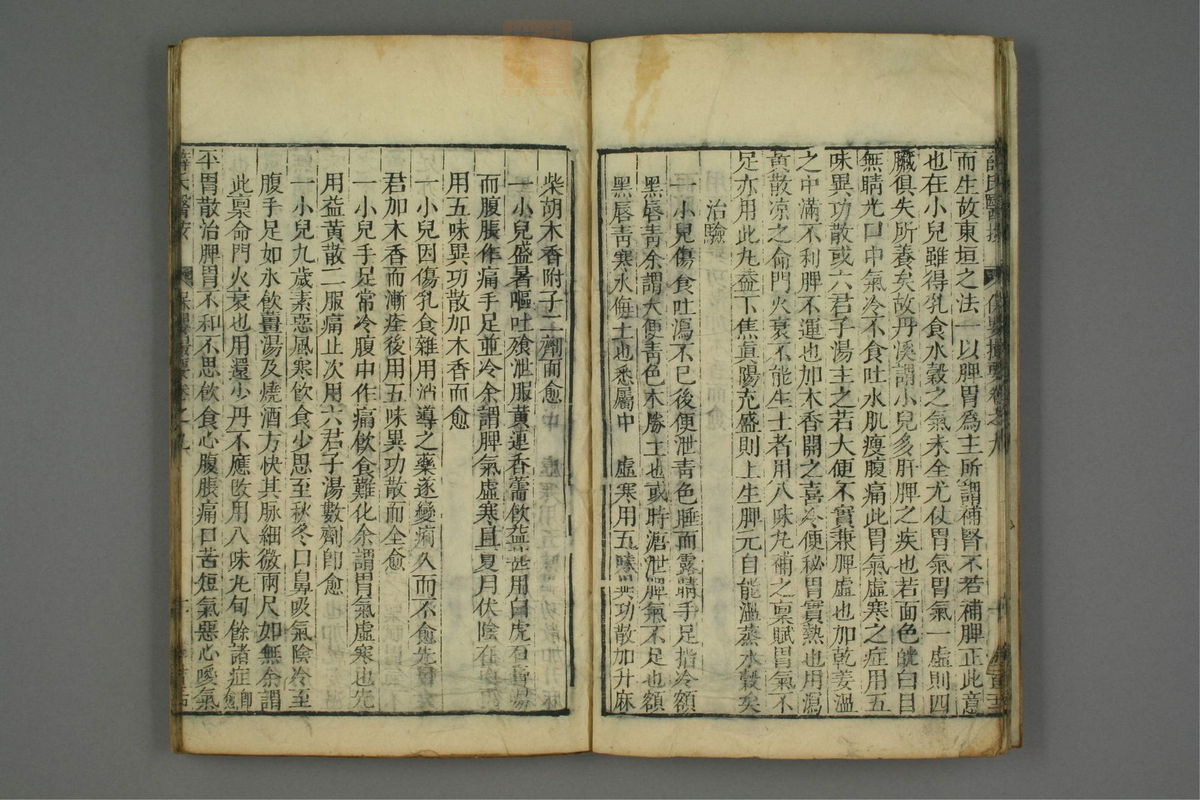 而生故東垣之法一以脾胃為主所謂補腎不若補脾正此意
也在小兒雖得乳食水穀之氣未全尤仗胃氣胃氣一虛則四
臟俱失所養矣故丹溪謂小兒多肝脾之疾也若面色㿠白目
無睛光口中氣冷不食吐水肌瘦腹痛此胃氣虛寒之症用五
味異功散或六君子湯主之若大便不實兼脾虛也加乾姜溫
之中滿不利脾不運也加木香開之喜冷便秘胃實熱也用瀉
黃散凉之命門火衰不能生土者用八味丸補之稟賦胃氣不
足亦用此丸蓋下焦眞陽充盛則上生脾元自能溫蒸水穀矣
治驗
一小兒傷食吐瀉不已後便泄靑色睡而露睛手足指冷額
黑唇靑余謂大便靑色木勝土也或時溏泄脾氣不足也額
黑唇靑寒水侮土也悉屬中 虛寒用五味異功散加升麻
柴胡木香附子二劑而愈
一小兒盛暑嘔吐飱泄服黃連香薷飲益甚用白虎石膏湯
而腹脹作痛手足並冷余謂脾氣虛寒且夏月伏陰在內
用五味異功散加木香而愈
一小兒因傷乳食雜用消導之藥遂變痢久而不愈先
君加木香而漸痊後用五味異功散而全愈
一小兒手足常冷腹中作痛飲食難化余謂胃氣虛寒也先
用益黃散二服痛止次用六君子湯數劑卽愈
一小兒九歲素惡風寒飲食少思至秋冬口鼻吸氣陰冷至
腹手足如水飲薑湯及燒酒方快其脉細微兩尺如無余謂
此稟命門火衰也用還少丹不應改用八味丸旬餘諸症卽愈
平胃散治脾胃不和不思飲食心腹脹痛口苦短氣惡心噯氣